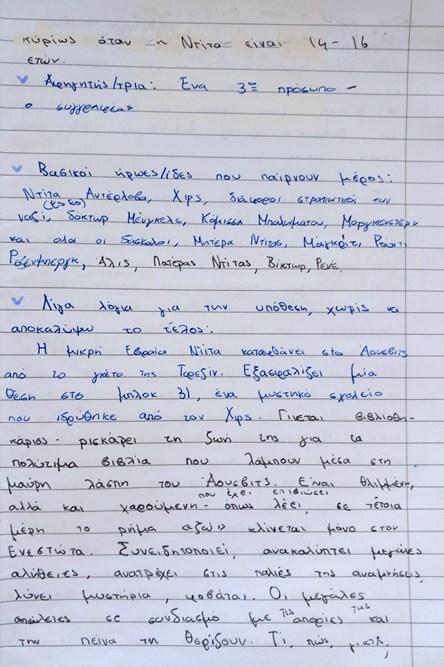 κυρίως όταν η Ντίτα είναι 14-16
ετών.
Αφηγητής/τρια: Ένα 3ο πρόσωπο -
ο συγγραφέας
Βασικοί ήρωες/ίδες που παίρνουν μέρος:
Ντίτα Αντλέροβα, Χιρς, διάφοροι στρατιωτικοί των
(Ες Ες)
ναζί, δόκτωρ Μένγκελε, Κόμισσα Μπαλωμάτου, Μοργκενστερν
και όλοι οι δασκάλοι, Μητέρα Ντίτας, Μάγκριτ, Ρούντι
Ρόζενμπεργκ, Άλις, Πατέρας Ντίτας, Βίκτωρ, Ρενέ.
Λίγα λόγια για την υπόθεση, χωρίς να
αποκαλύψω το τέλος:
Η μικρή Εβραία Ντίτα καταφθάνει στο Άουσβιτς
από το γκέτο της Τερεζίν. Εξασφαλίζει μία
θέση στο μπλοκ 31, ένα μυστικό σχολείο
που ιδρύθηκε από τον Χιρς. Γίνεται βιβλιοθη-
κάριος - ρισκάρει τη ζωή της για τα
πολύτιμα βιβλία που λάμπουν μέσα στη
μαύρη λάσπη του Άουσβιτς. Είναι θλιμμένη,
που έχει επιβιώσει
αλλά και χαρούμενη - όπως λέει, σε τέτοια
μέρη το ρήμα «ζω» κλίνεται μόνο στον
Ενεστώτα. Συνειδητοποιεί, ανακαλύπτει μεγάλες
αλήθειες, ανατρέχει στις παλιές της αναμνήσεις,
λύνει μυστήρια, φοβάται. Οι μεγάλες
απώλειες σε συνδιασμό με τις απορίες της και
την πείνα τη θερίζουν. Τι, πώς, γιατί,